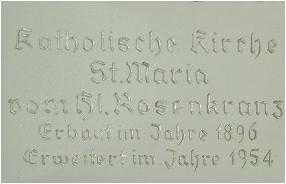 Katholische Kirche
St. Maria
vom Hl. Rosenkranz
Erbaut im Jahre 1896
Erweitert im Jahre 1954